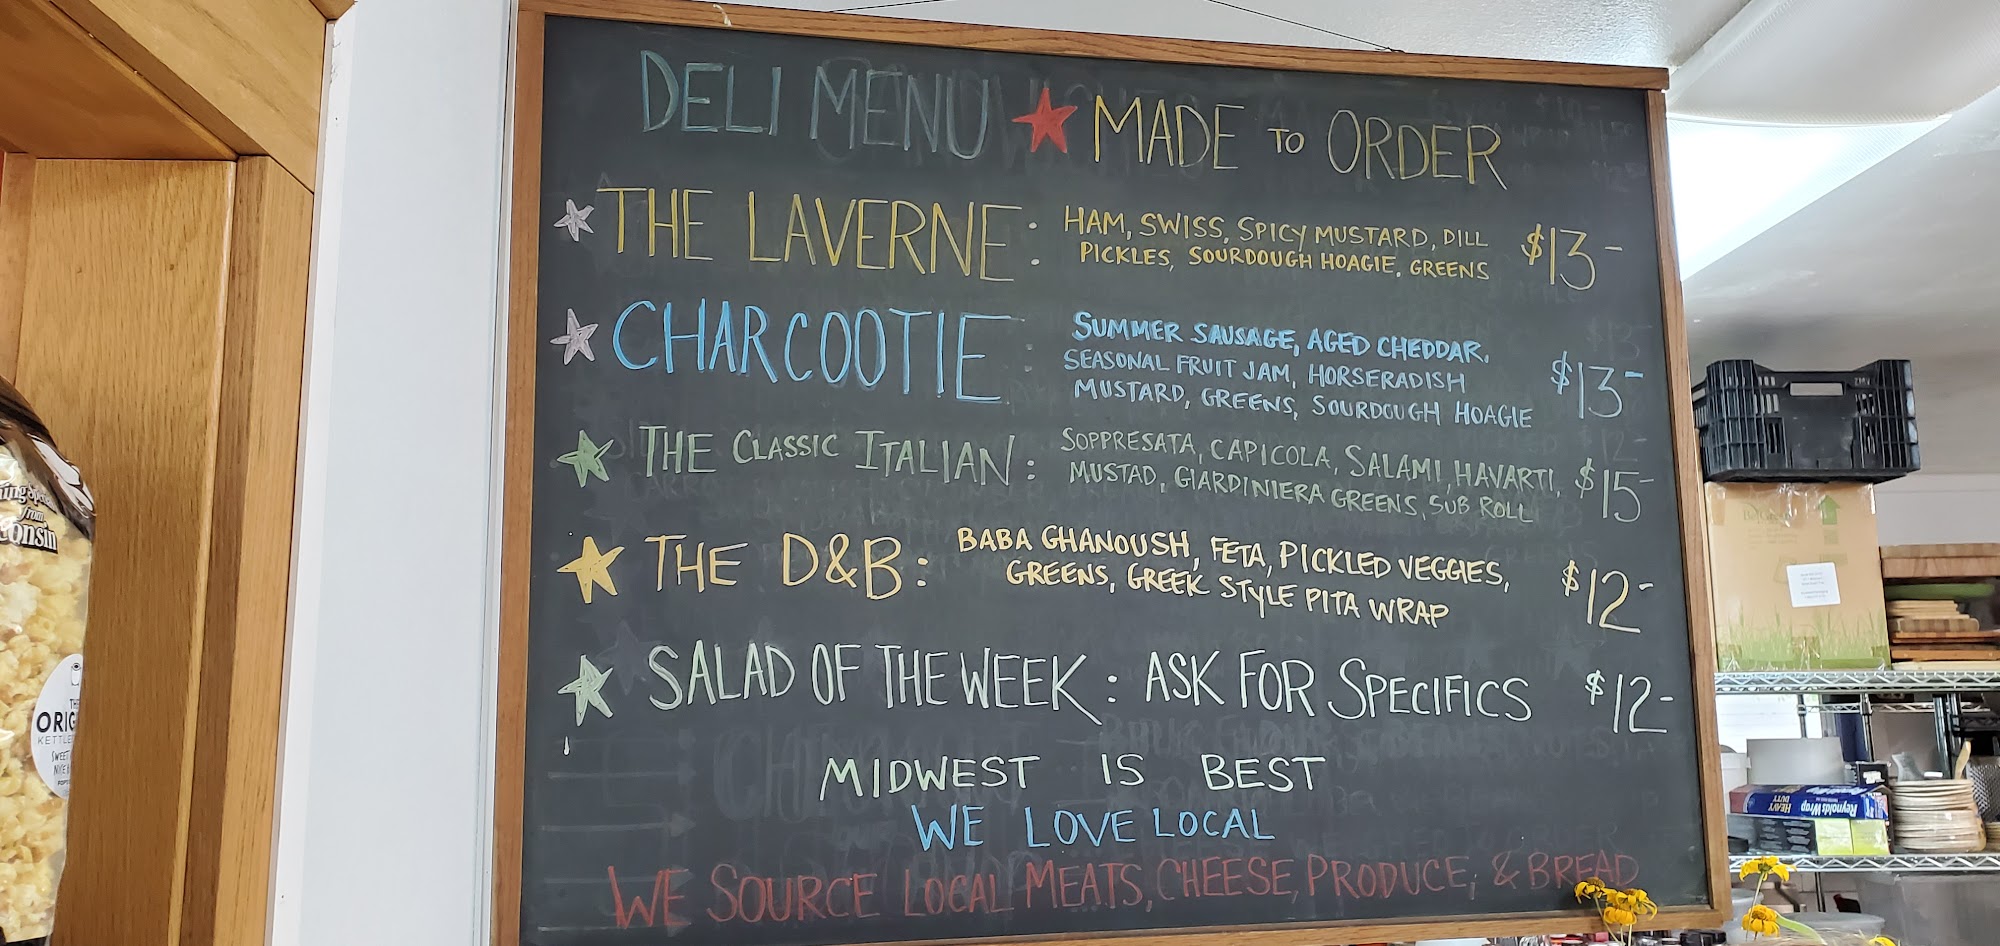 DELI MENU ★ MADE TO ORDER
THE LAVERNE: HAM, SWISS, SPICY MUSTARD, DILL
PICKLES, SOURDOUGH HOAGIE, GREENS
$13-
CHARCOOTIE: SUMMER SAUSAGE, AGED CHEDDAR,
SEASONAL FRUIT JAM, HORSERADISH
MUSTARD, GREENS, SOURDOUGH HOAGIE
$13-
THE CLASSIC ITALIAN: SOPPRESATA, CAPICOLA, SALAMI, HAVARTI,
MUSTAD, GIARDINIERA GREENS, SUB ROLL
$15-
THE D&B: BABA GHANOUSH, FETA, PICKLED VEGGIES,
GREENS, GREEK STYLE PITA WRAP
$12-
SALAD OF THE WEEK: ASK FOR SPECIFICS $12-
MIDWEST IS BEST
WE LOVE LOCAL
WE SOURCE LOCAL MEATS, CHEESE, PRODUCE, & BREAD
from
THE
KETTLE
SWEET
Reynolds Wrap
HEAVY
DUTY